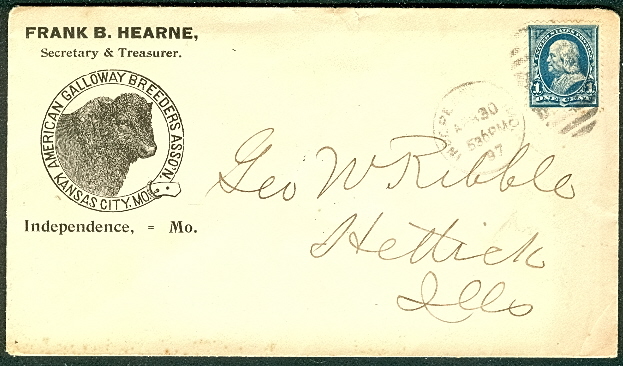 FRANK B. HEARNE,
Secretary & Treasurer.
AMERICAN GALLOWAY BREEDERS ASSO'N.
KANSAS CITY, MO.
Independence, = Mo.
1 ONE CENT 1
30
97
Geo W Kribble
Hettick
Ills